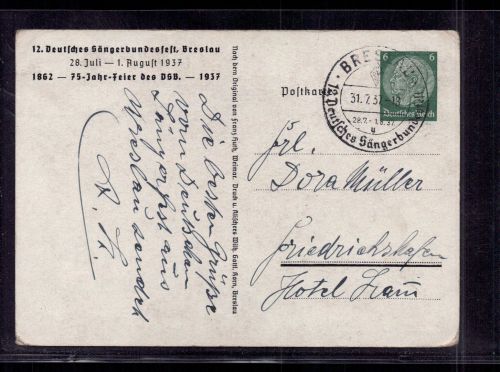 12. Deutsches Sängerbundesfest, Breslau
28. Juli — 1. August 1937
1862 — 75-Jahr-Feier des DSB. — 1937
Die besten Grüße
vom Deutschen
Sängerfest aus
Breslau sendet
Nach dem Original von Franz Huth, Weimar. Druck u. Klischees Wilh. Gottl. Korn, Breslau
Postkarte
BRESLAU
31.7.37
28.7.-1.8.37
12. Deutsches Sängerbundesfest
6
6
Deutsches Reich
Frl.
Dora Müller
Friedrichshafen
Hotel